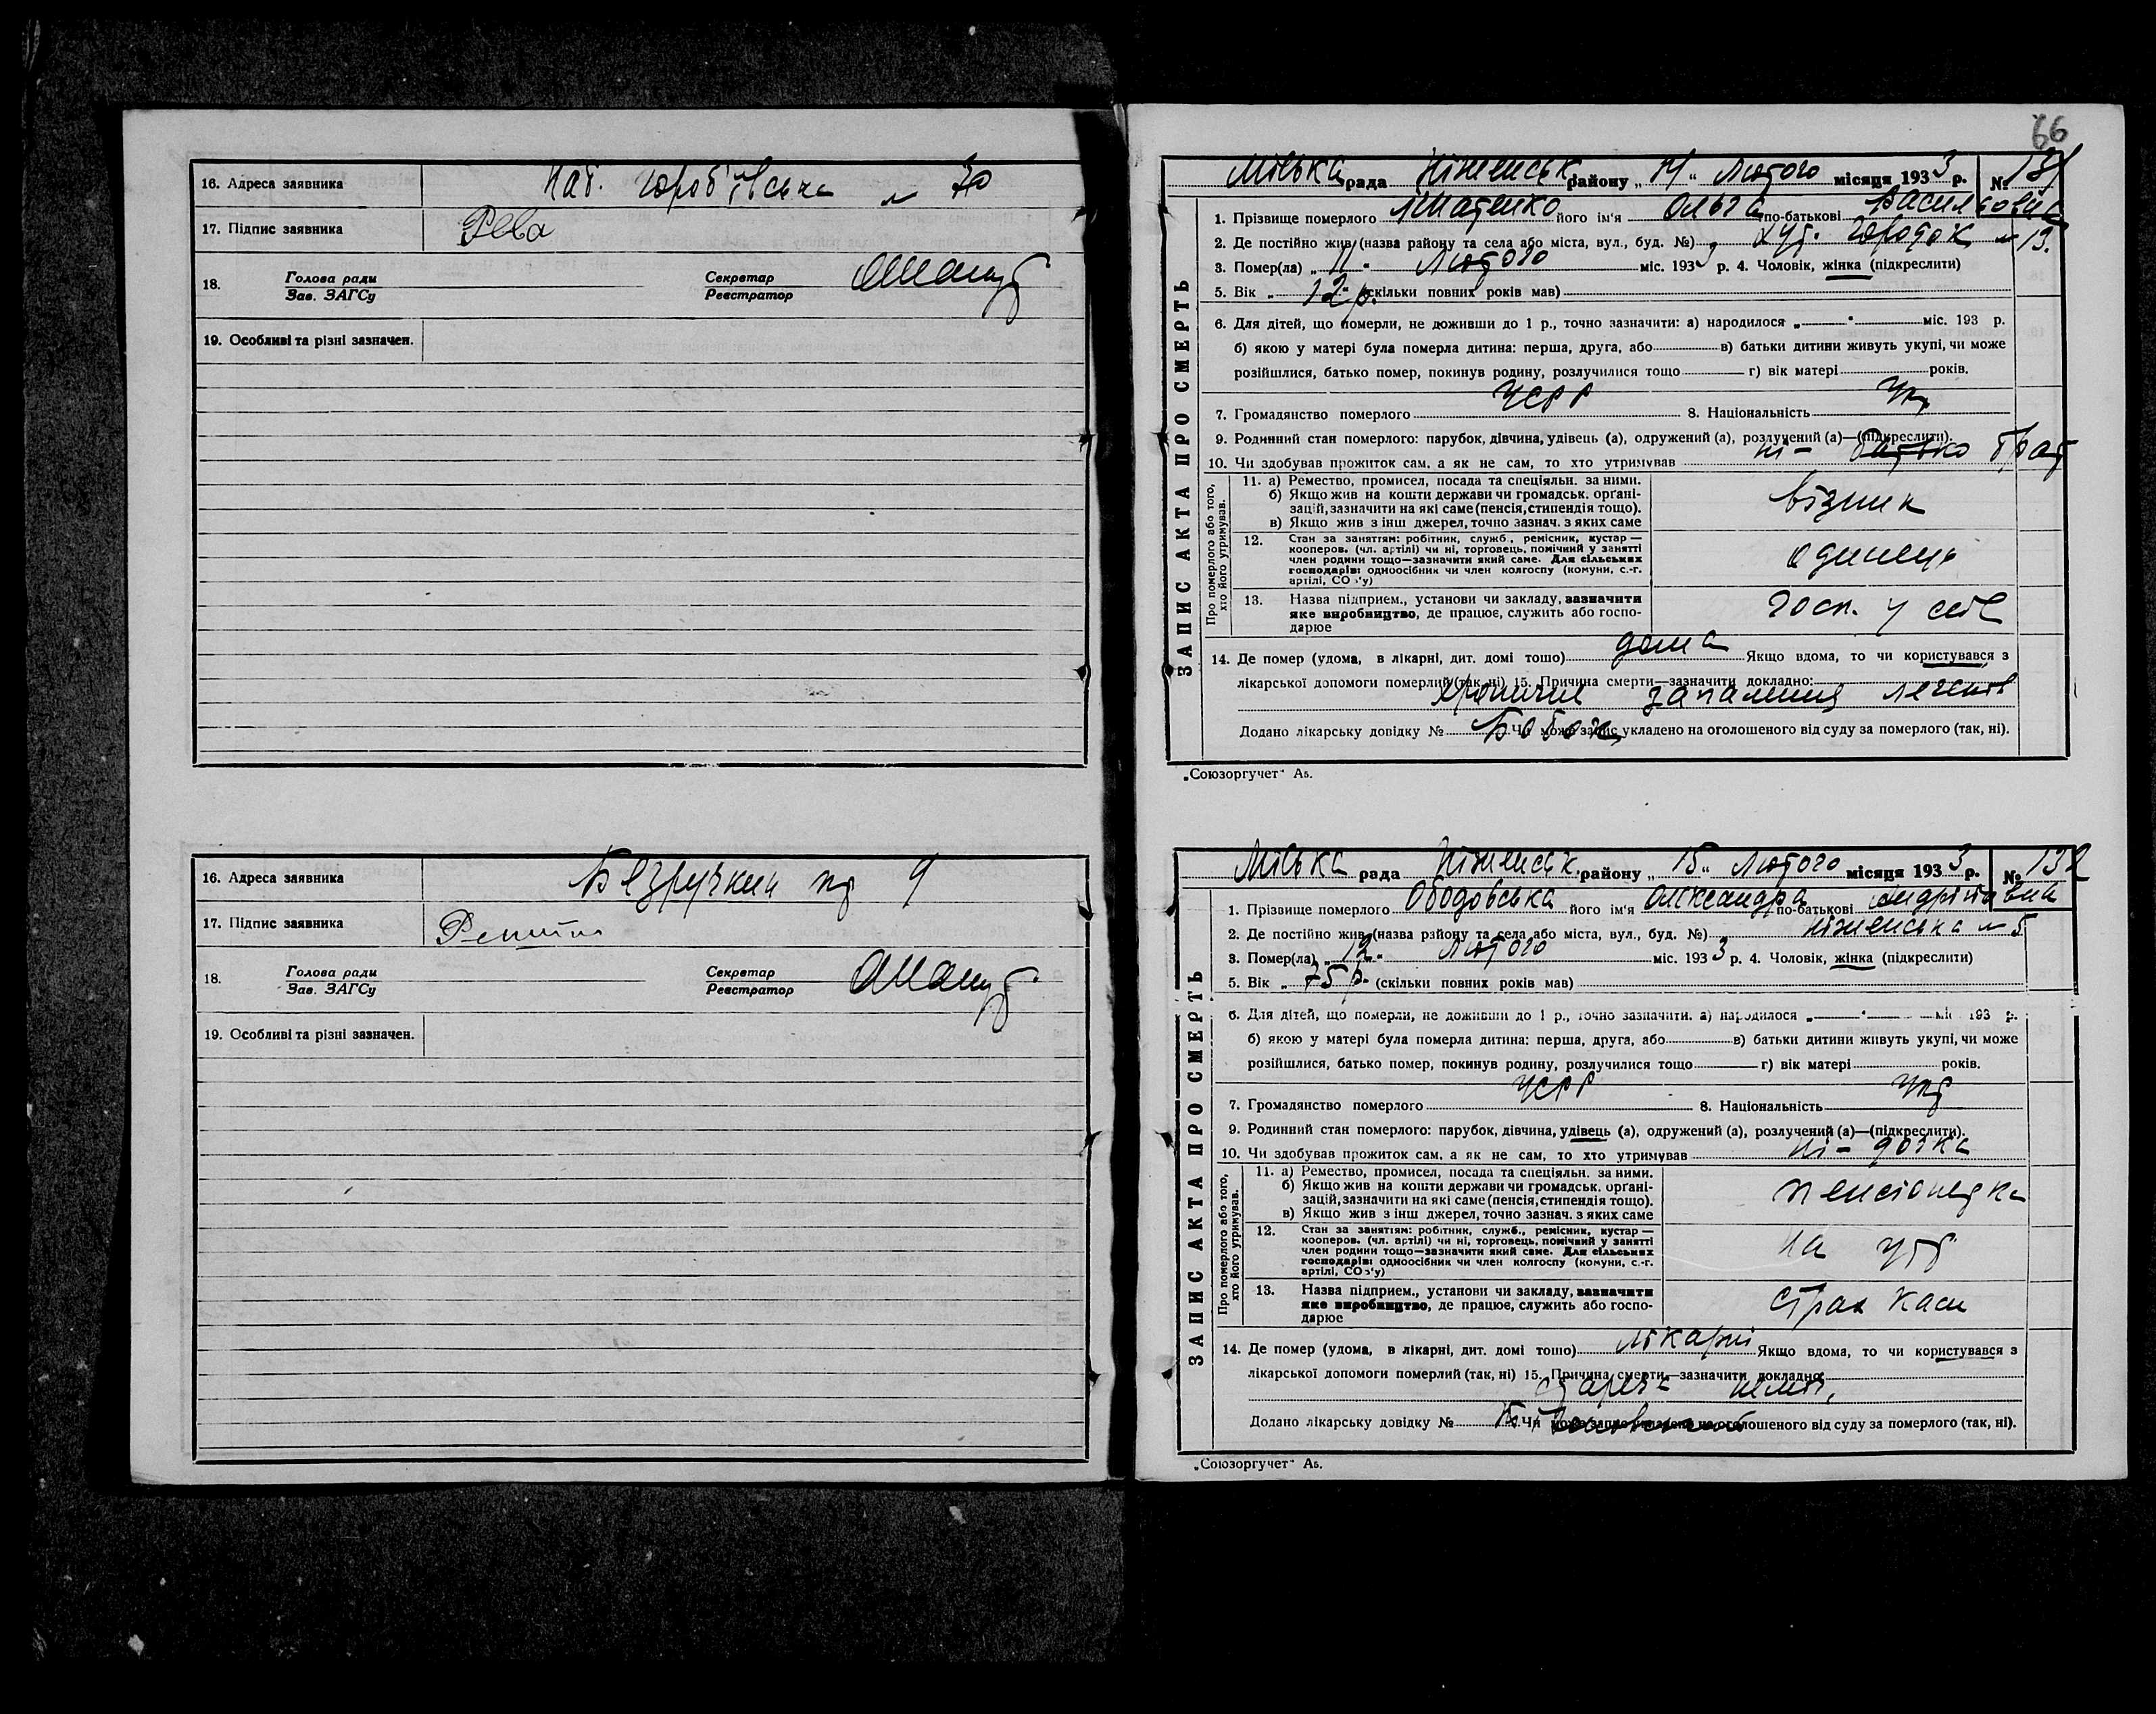 16. Адреса заявника Наб. 70
17. Підпис заявника Рева
18. Голова ради
Зав. ЗАГСу
Секретар
Реєстратор
19. Особливі та різні зазначен.
16. Адреса заявника 9
17. Підпис заявника
18. Голова ради
Зав. ЗАГСу
Секретар
Реєстратор
19. Особливі та різні зазначен.
66
ЗАПИС АКТА ПРО СМЕРТЬ
Міська рада Ніженськ. району „14" Лютого місяця 1933 р. № 131
1. Прізвище померлого його ім'я Ольга по-батькові Василівна
2. Де постійно жив (назва району та села або міста, вул., буд. №) хут. Городок № 13.
3. Помер(ла) „11" Лютого міс. 1933 р. 4. Чоловік, жінка (підкреслити)
5. Вік „12 р." (скільки повних років мав)
6. Для дітей, що померли, не доживши до 1 р., точно зазначити: а) народилося „ " міс. 193 р.
б) якою у матері була померла дитина: перша, друга, або в) батьки дитини живуть укупі, чи може
розійшлися, батько помер, покинув родину, розлучилися тощо г) вік матері років.
7. Громадянство померлого УСРР 8. Національність Укр
9. Родинний стан померлого: парубок, дівчина, удівець (а), одружений (а), розлучений (а)—(підкреслити).
10. Чи здобував прожиток сам, а як не сам, то хто утримував ні – батько брат
Про померлого або того,
хто його утримував.
11. а) Ремество, промисел, посада та спеціяльн. за ними.
б) Якщо жив на кошти держави чи громадськ. орґані-
зацій, зазначити на які саме (пенсія, стипендія тощо).
в) Якщо жив з інш джерел, точно зазнач. з яких саме
візник
12. Стан за заняттям: робітник, служб., ремісник, кустар —
кооперов. (чл. артілі) чи ні, торговець, помічний у занятті
член родини тощо—зазначити який саме. Для сільських
господарів: одноосібник чи член колгоспу (комуни, с.-г.
артілі, СОЗ'у)
одинець
13. Назва підприєм., установи чи закладу, зазначити
яке виробництво, де працює, служить або госпо-
дарює
госп. у себе
14. Де помер (удома, в лікарні, дит. домі тощо) дома Якщо вдома, то чи користувався з
лікарської допомоги померлий (так, ні) 15. Причина смерти—зазначити докладно:
запалення легенів
Додано лікарську довідку № Чи може запис укладено на оголошеного від суду за померлого (так, ні).
„Союзоргучет" А5.
ЗАПИС АКТА ПРО СМЕРТЬ
Міська рада Ніженськ. району „15" Лютого місяця 1933 р. № 132
1. Прізвище померлого Ободовська його ім'я Олександра по-батькові Андріївна
2. Де постійно жив (назва району та села або міста, вул., буд. №) Ніженська № 5
3. Помер(ла) „12" Лютого міс. 1933 р. 4. Чоловік, жінка (підкреслити)
5. Вік „75 р. (скільки повних років мав)
6. Для дітей, що померли, не доживши до 1 р., точно зазначити: а) народилося „ " міс 193 р.
б) якою у матері була померла дитина: перша, друга, або в) батьки дитини живуть укупі, чи може
розійшлися, батько помер, покинув родину, розлучилися тощо г) вік матері років.
7. Громадянство померлого УСРР 8. Національність Укр
9. Родинний стан померлого: парубок, дівчина, удівець (а), одружений (а), розлучений (а)—(підкреслити).
10. Чи здобував прожиток сам, а як не сам, то хто утримував ні – дочка
Про померлого або того,
хто його утримував.
11. а) Ремество, промисел, посада та спеціяльн. за ними.
б) Якщо жив на кошти держави чи громадськ. орґані-
зацій, зазначити на які саме (пенсія, стипендія тощо).
в) Якщо жив з інш джерел, точно зазнач. з яких саме
пенсіонерка
12. Стан за заняттям: робітник, служб., ремісник, кустар —
кооперов. (чл. артілі) чи ні, торговець, помічний у занятті
член родини тощо—зазначити який саме. Для сільських
господарів: одноосібник чи член колгоспу (комуни, с.-г.
артілі, СОЗ'у)
на утр
13. Назва підприєм., установи чи закладу, зазначити
яке виробництво, де працює, служить або госпо-
дарює
Страх каси
14. Де помер (удома, в лікарні, дит. домі тощо) лікарні Якщо вдома, то чи користувався з
лікарської допомоги померлий (так, ні) 15. Причина смерти—зазначити докладно:
Додано лікарську довідку № Чи може запис укладено на оголошеного від суду за померлого (так, ні).
„Союзоргучет" А5.